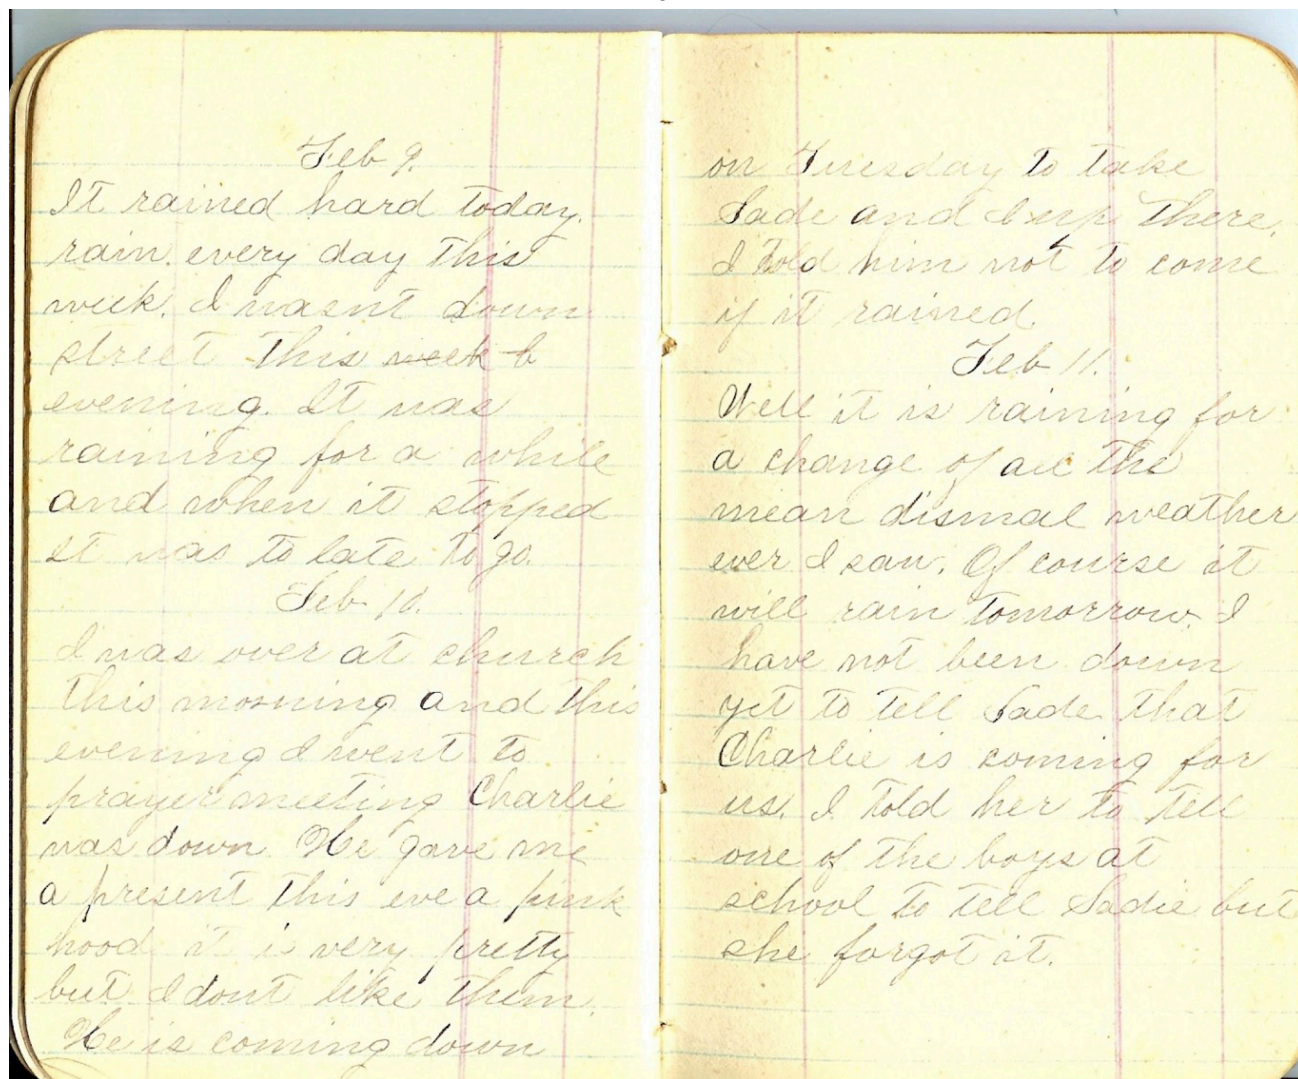 Feb 9.
It rained hard today.
rain. every day this
week. I wasnt down
street this week b
evening. It was
raining for a while
and when it stopped
it was to late to go.
Feb 10.
I was over at church
this morning and this
evening I went to
prayer meeting Charlie
was down He gave me
a present this eve a pink
hood it is very pretty
but I dont like them.
He is coming down
on Tuesday to take
Sade and I up there.
I told him not to come
if it rained.
Feb 11.
Well it is raining for
a change of all the
mean dismal weather
ever I saw. Of course it
will rain tomorrow. I
have not been down
yet to tell Sade that
Charlie is coming for
us. I told her to tell
one of the boys at
school to tell Sadie but
she forgot it.